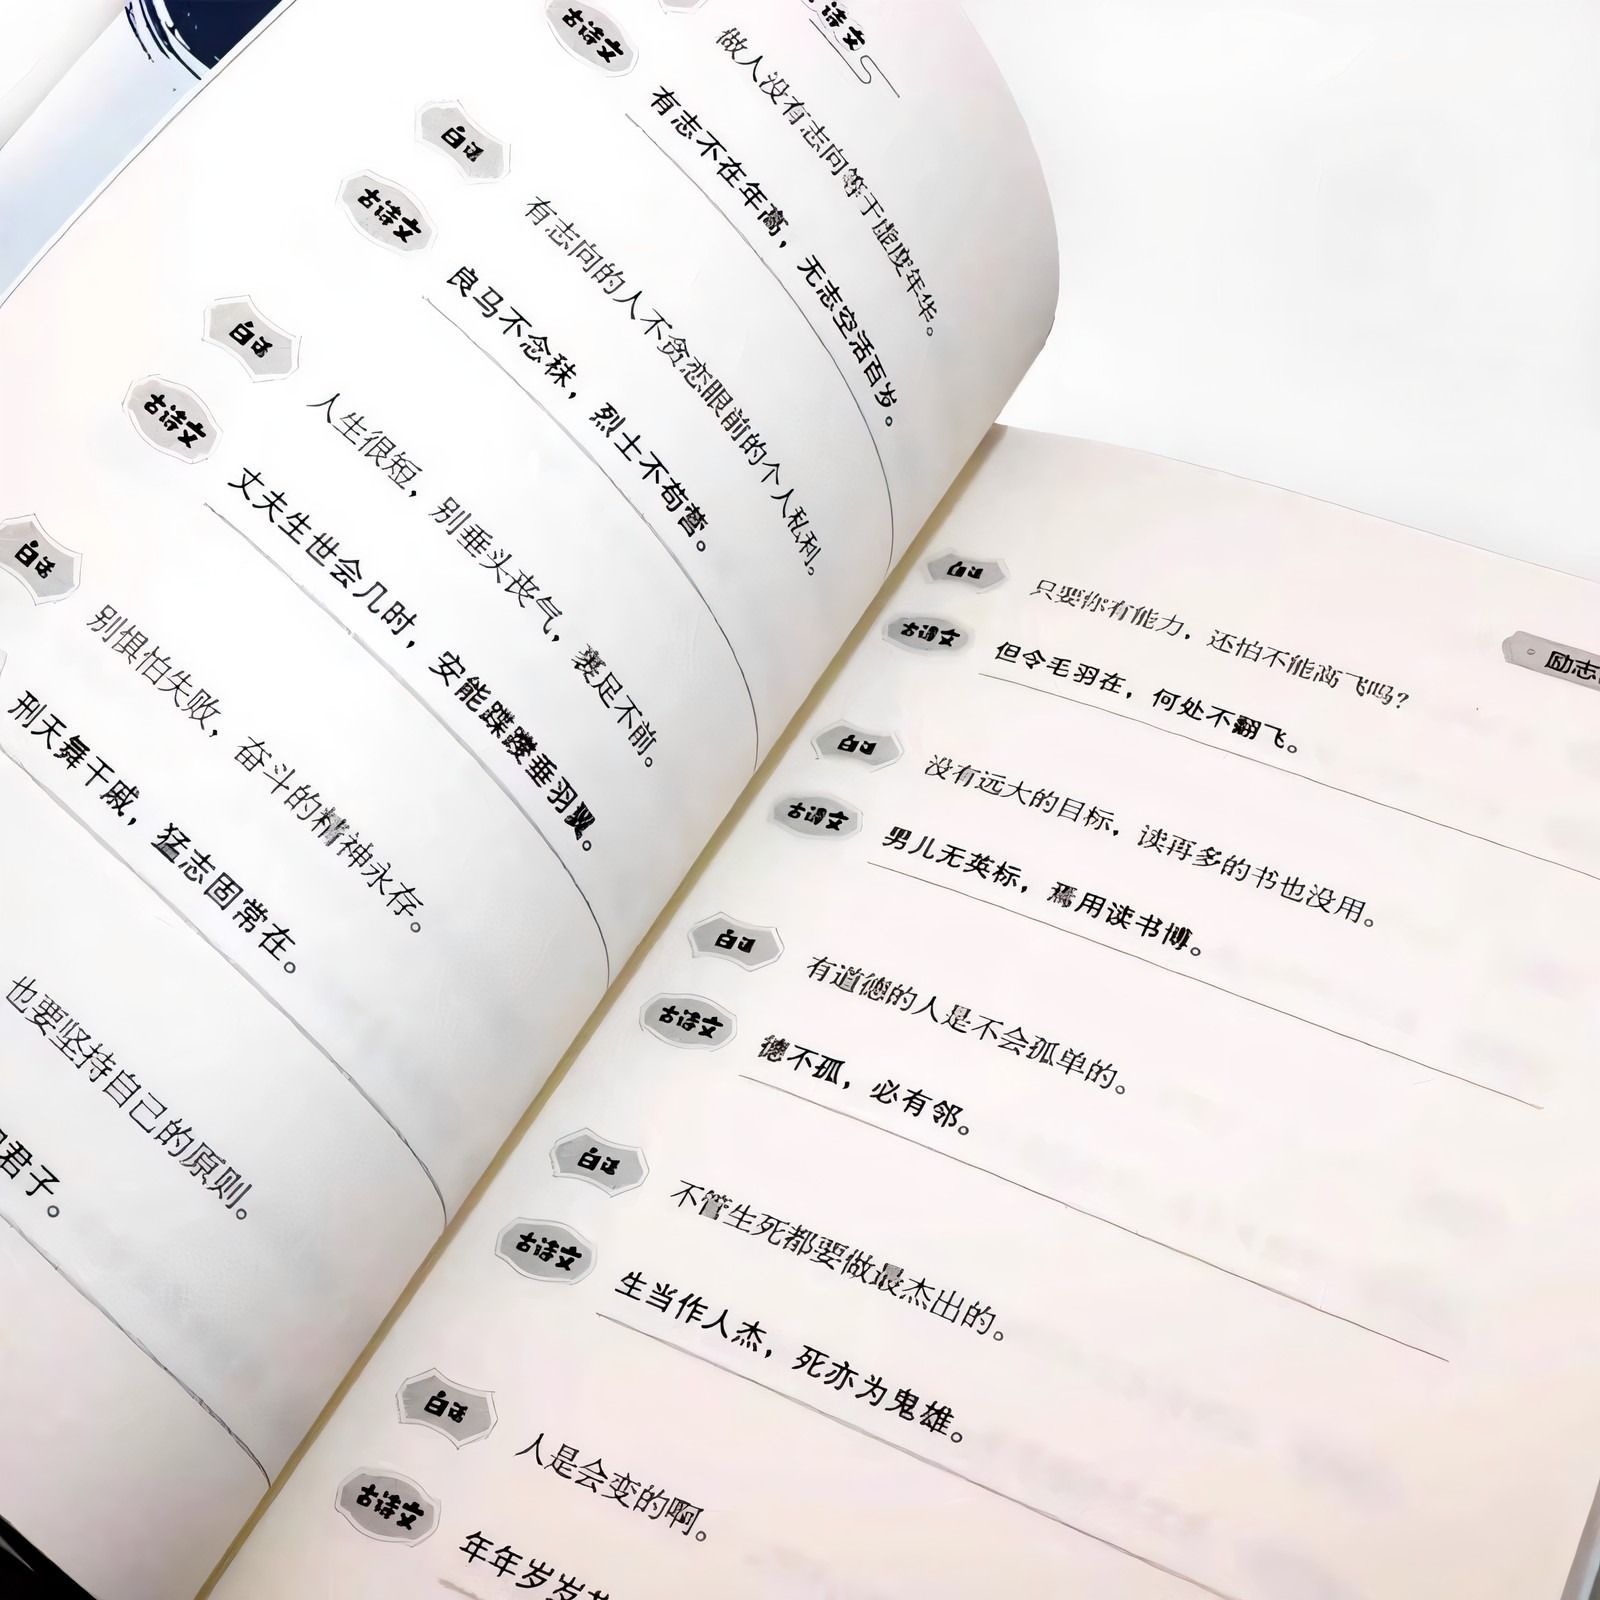 诗文
做人没有志向等于虚度年华。
古诗文
有志不在年高，无志空活百岁。
白话
有志向的人不贪恋眼前的个人私利。
古诗文
良马不念秣，烈士不苟营。
白话
人生很短，别垂头丧气，裹足不前。
古诗文
丈夫生世会几时，安能蹀躞垂羽翼。
白话
别惧怕失败，奋斗的精神永存。
刑天舞干戚，猛志固常在。
也要坚持自己的原则。
君子。
励志
白话
只要你有能力，还怕不能高飞吗？
古诗文
但令毛羽在，何处不翻飞。
白话
没有远大的目标，读再多的书也没用。
古诗文
男儿无英标，焉用读书博。
白话
有道德的人是不会孤单的。
古诗文
德不孤，必有邻。
白话
不管生死都要做最杰出的。
古诗文
生当作人杰，死亦为鬼雄。
白话
人是会变的啊。
古诗文
年年岁岁